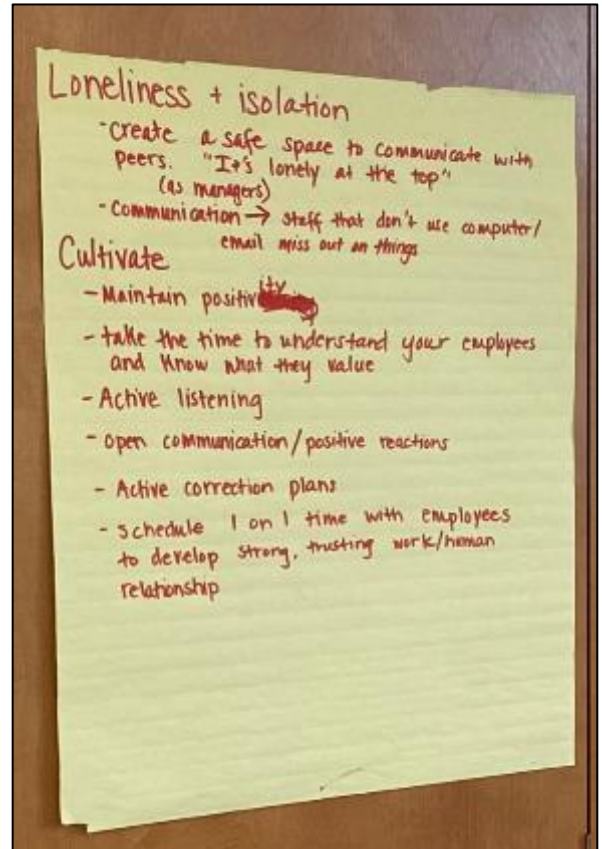 Loneliness + isolation
-Create a safe space to communicate with
peers. "It's lonely at the top"
(as managers)
-Communication → staff that don't use computer/
email miss out on things
Cultivate
-Maintain positivity
-take the time to understand your employees
and know what they value
-Active listening
-open communication/positive reactions
- Active correction plans
- schedule 1 on 1 time with employees
to develop strong, trusting work/human
relationship